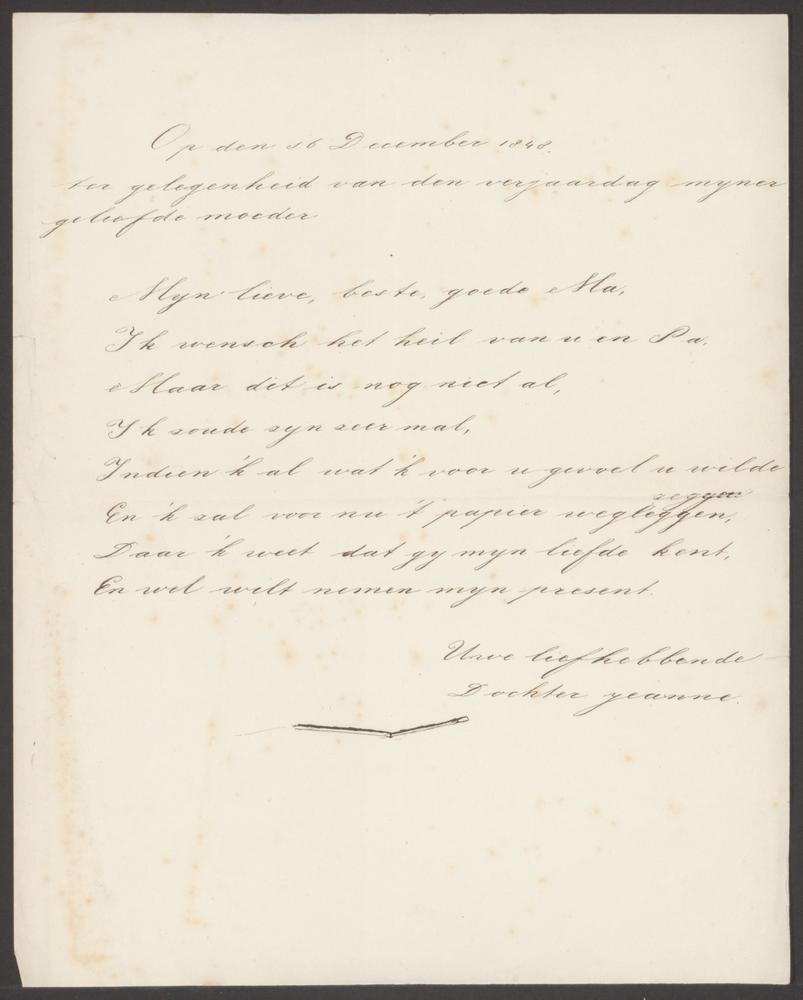 Op den 16 December 1848.
ter gelegenheid van den verjaardag myner
geliefde moeder
Myn lieve, beste, goede Ma,
Ik wensch het heil van u en Pa.
Maar dit is nog niet al,
Ik zoude zyn zeer mal,
Indien 'k al wat 'k voor u gevoel u wilde
zeggen
En 'k zal voor nu 't papier wegleggen,
Daar 'k weet dat gy myn liefde kent,
En wel wilt nemen myn present.
Uwe liefhebbende
Dochter Jeanne.